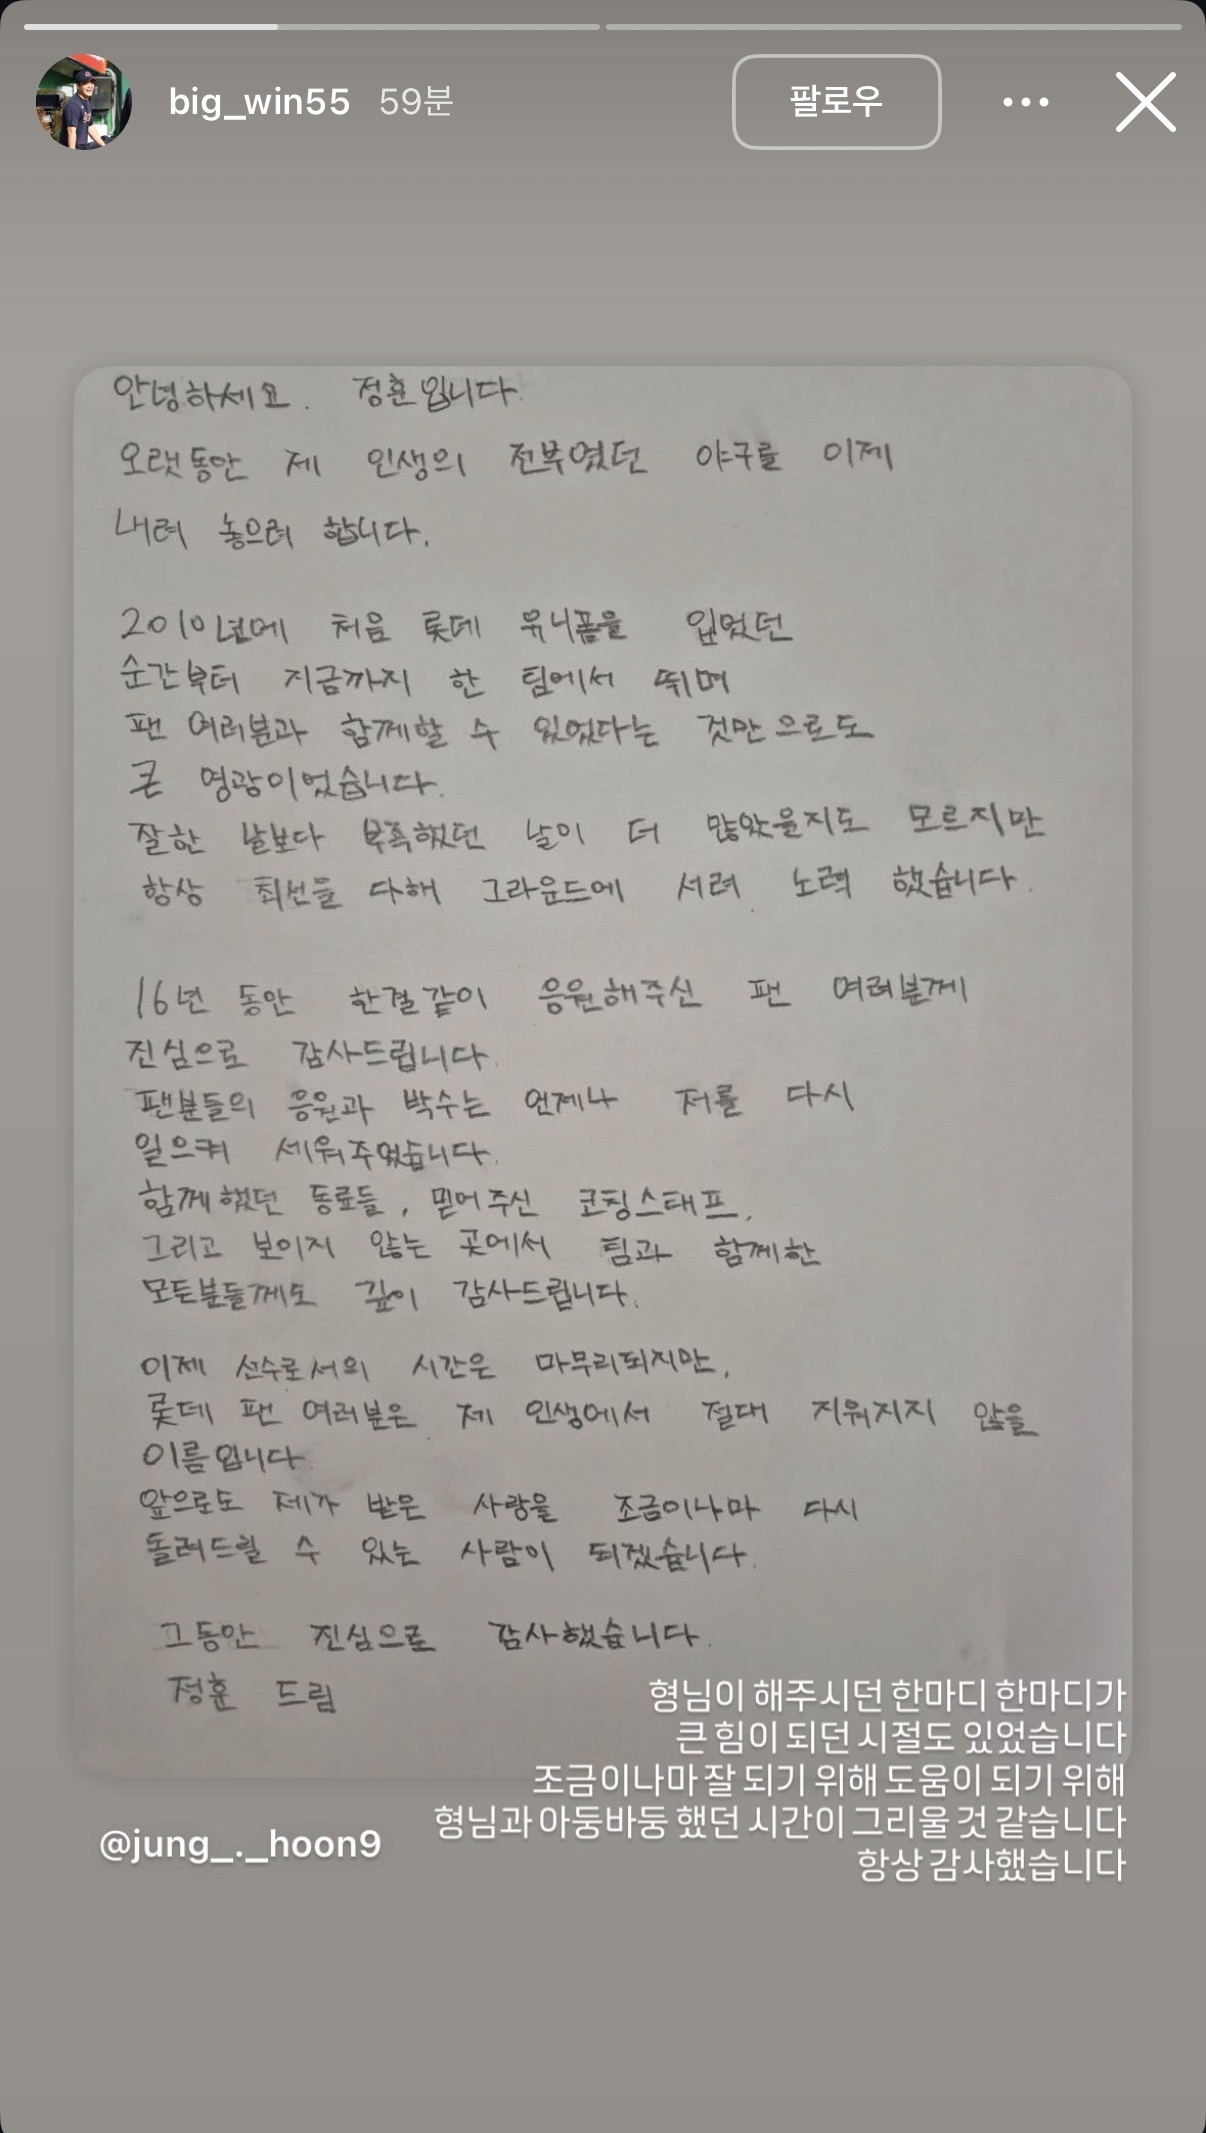 big_win55 59분
팔로우
안녕하세요. 정훈입니다.
오랫동안 제 인생의 전부였던 야구를 이제
내려 놓으려 합니다.
2010년에 처음 롯데 유니폼을 입었던
순간부터 지금까지 한 팀에서 뛰며
팬 여러분과 함께할 수 있었다는 것만으로도
큰 영광이었습니다.
잘한 날보다 부족했던 날이 더 많았을지도 모르지만
항상 최선을 다해 그라운드에 서려 노력 했습니다.
16년 동안 한결같이 응원해주신 팬 여러분께
진심으로 감사드립니다.
팬분들의 응원과 박수는 언제나 저를 다시
일으켜 세워주었습니다.
함께했던 동료들, 믿어주신 코칭스태프,
그리고 보이지 않는 곳에서 팀과 함께한
모든분들께도 깊이 감사드립니다.
이제 선수로서의 시간은 마무리되지만,
롯데 팬 여러분은 제 인생에서 절대 지워지지 않을
이름입니다
앞으로도 제가 받은 사랑을 조금이나마 다시
돌려드릴 수 있는 사람이 되겠습니다.
그동안 진심으로 감사했습니다.
정훈 드림
형님이 해주시던 한마디 한마디가
큰 힘이 되던 시절도 있었습니다
조금이나마 잘 되기 위해 도움이 되기 위해
형님과 아둥바둥 했던 시간이 그리울 것 같습니다
항상 감사했습니다
@jung_._hoon9